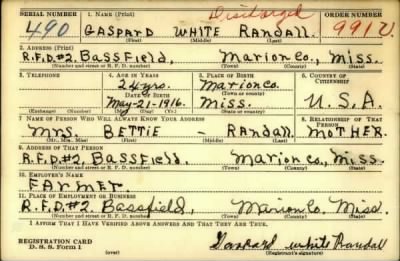 Discharged
SERIAL NUMBER 1. NAME (Print) ORDER NUMBER
490 GASPARD WHITE RANDALL.
(First) (Middle) (Last)
2. ADDRESS (Print)
R.F.D.#2. BASSFIELD, MARION CO, MISS.
(Number and street or R. F. D. number) (Town) (County) (State)
3. TELEPHONE 4. AGE IN YEARS 5. PLACE OF BIRTH 6. COUNTRY OF CITIZENSHIP
24 yrs. MARION CO.
DATE OF BIRTH (Town or county)
MAY-21-1916. MISS. U.S.A.
(Exchange) (Number) (Mo.) (Day) (Yr.) (State or country)
7. NAME OF PERSON WHO WILL ALWAYS KNOW YOUR ADDRESS 8. RELATIONSHIP OF THAT PERSON
MRS. BETTIE - RANDALL. MOTHER.
(Mr., Mrs., Miss) (First) (Middle) (Last)
9. ADDRESS OF THAT PERSON
R.F.D.#2, BASSFIELD, MARION CO, MISS.
(Number and street or R. F. D. number) (Town) (County) (State)
10. EMPLOYER'S NAME
FARMER.
11. PLACE OF EMPLOYMENT OR BUSINESS
R.F.D.#2. Bassfield, Marion Co. Miss.
(Number and street or R. F. D. number) (Town) (County) (State)
I AFFIRM THAT I HAVE VERIFIED ABOVE ANSWERS AND THAT THEY ARE TRUE.
REGISTRATION CARD
D. S. S. Form 1 (over) Gaspard White Randall
(Registrant's signature)